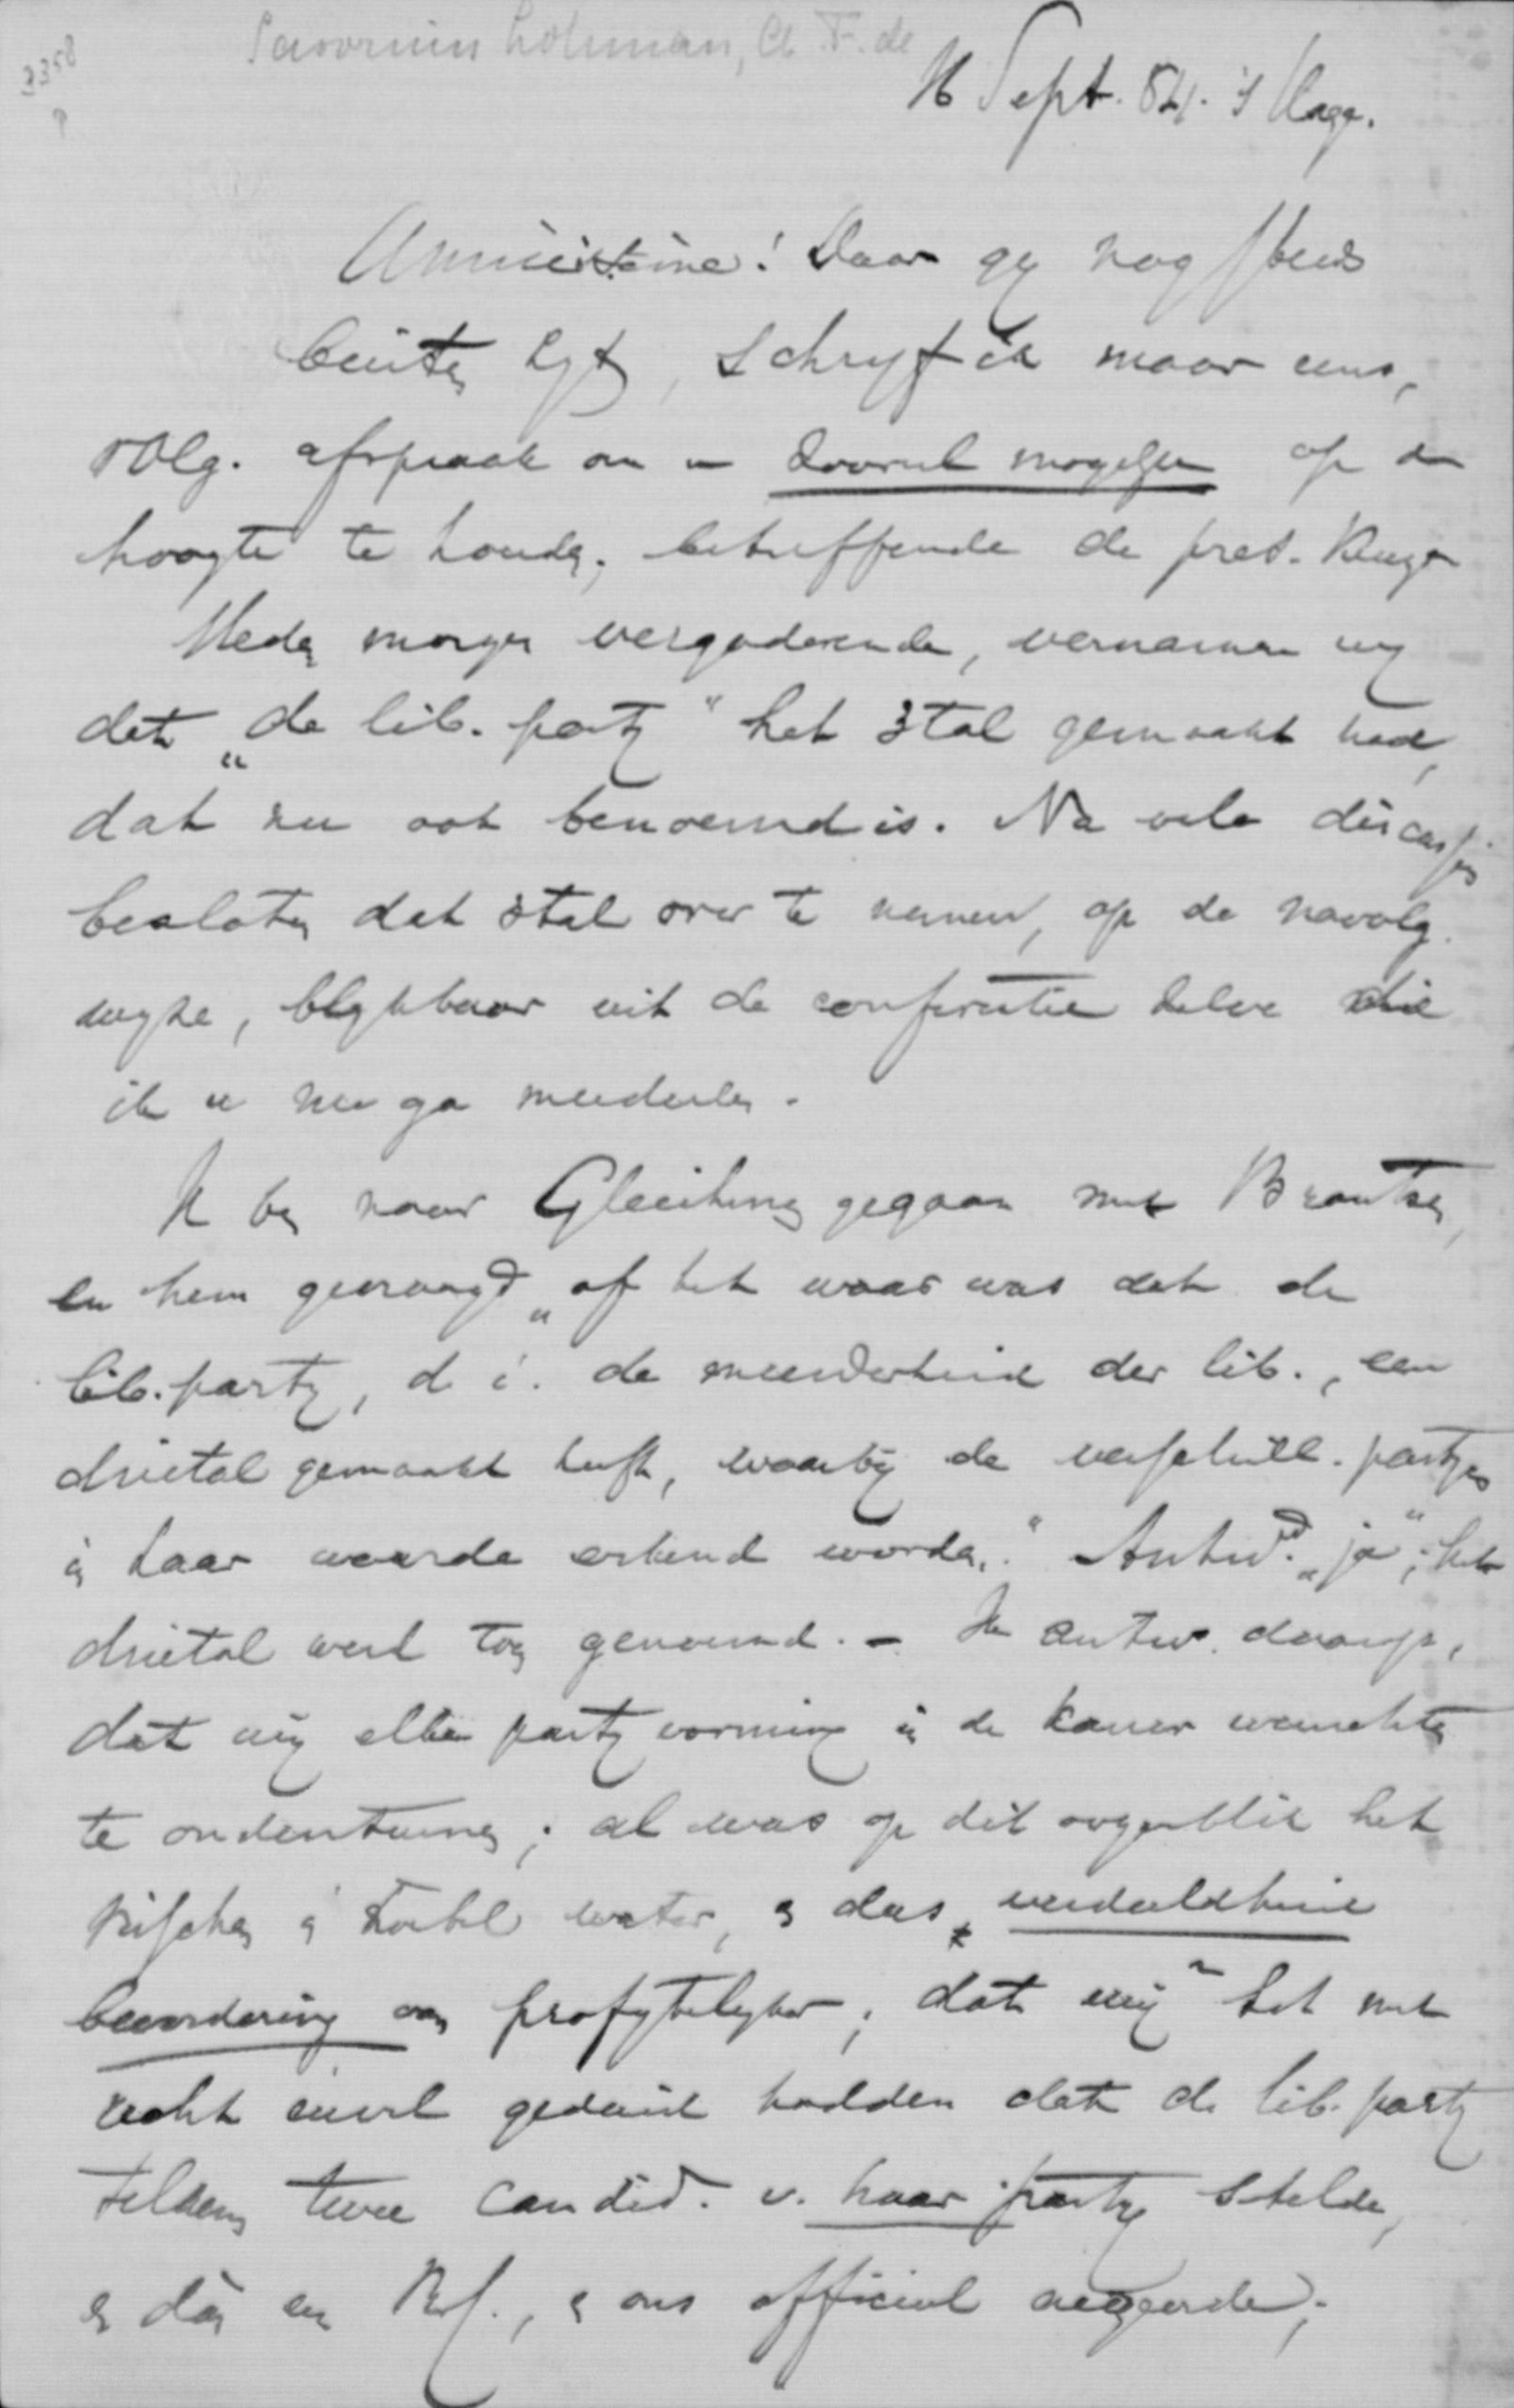 3358
Savornin Lohman, A. F. de
16 Sept. 84. 's Hage.
Amicissime! Daar gij nog steeds
buiten zijt, schrijf ik maar eens,
volg. afspraak om u zooveel mogelijk op de
hoogte te houden, betreffende de pres. keuze
Heden morgen vergaderende, vernamen wij
dat „de lib. partij" het 3tal gemaakt had,
dat nu ook benoemd is. Na vele discussies
besloten dat 3tal over te nemen, op de navolg.
wijze, blijkbaar uit de conferentie zelve die
ik u nu ga mededeelen.
Ik ben naar Gleichman gegaan met Brantsen,
en hem gevraagd „of het waar was dat de
lib. partij, d. i. de meerderheid der lib., een
drietal gemaakt heeft, waarbij de verschill. partijen
in haar waarde erkend worden." Antwd. „ja"; het
drietal werd toen genoemd. – Ik antw. daarop,
dat wij elke partijvorming in de kamer wenschten
te ondersteunen; al was op dit oogenblik het
visschen in troebel water, en dus verdeeldheid
bevordering van profijtelijker; dat wij het met
recht euvel geduid hadden dat de lib. partij
telkens twee candid. v. haar partij stelde,
en dan een Rf., en ons officieel negeerde;